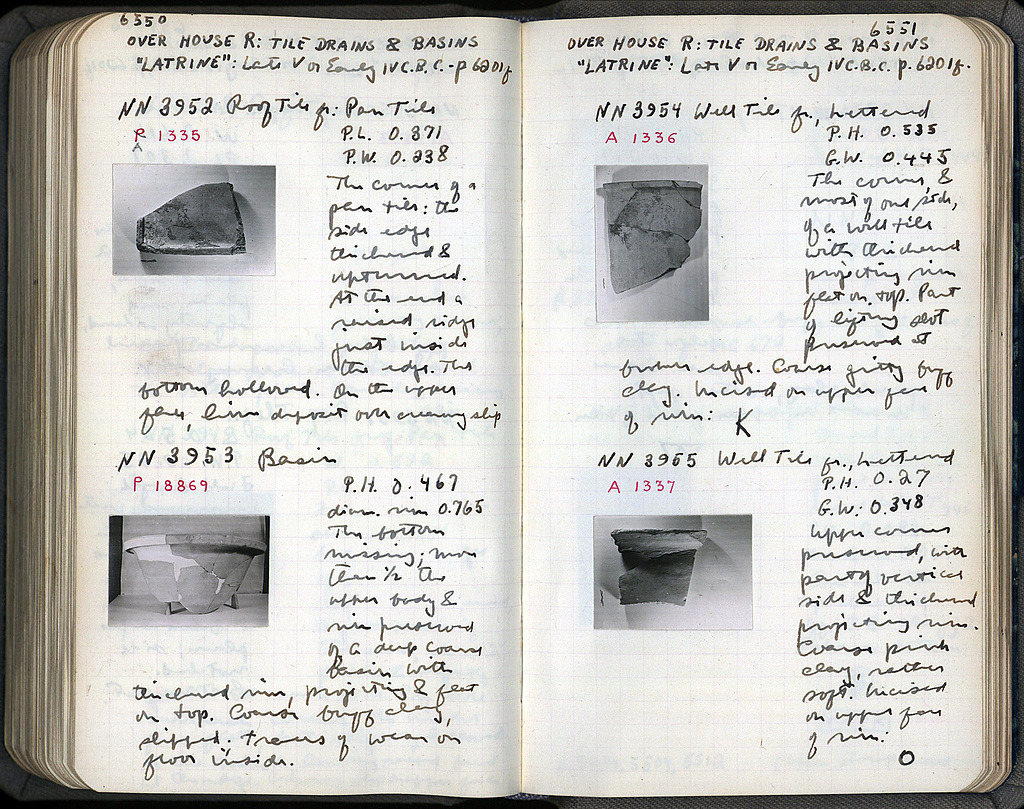 6550
OVER HOUSE R: TILE DRAINS & BASINS
"LATRINE": Late V or Early IV C. B.C. - p 6201f.
NN 3952 Roof Tile fr: Pan Tile
P 1335
A
P.L. 0.371
P.W. 0.238
The corner of a
pan tile: the
side edge
thickened &
upturned.
At the end a
raised ridge
just inside
the edge. The
bottom hollowed. On the upper
face, lime deposit over creamy slip
NN 3953 Basin
P 18869
P.H. 0.467
diam. rim 0.765
The bottom
missing; more
than 1/2 the
upper body &
rim preserved
of a deep coarse
basin with
thickened rim, projecting & flat
on top. Coarse buff clay,
slipped. Traces of wear on
floor inside.
6551
OVER HOUSE R: TILE DRAINS & BASINS
"LATRINE": Late V or Early IV C. B.C. p. 6201f.
NN 3954 Well Tile fr., lettered
A 1336
P.H. 0.535
G.W. 0.445
The corner, &
most of one side,
of a well tile
with thickened
projecting rim
flat on top. Part
of lifting slot
preserved at
broken edge. Coarse gritty buff
clay. Incised on upper face
of rim: K
NN 3955 Well Tile fr., lettered
A 1337
P.H. 0.27
G.W.: 0.348
Upper corner
preserved, with
part of vertical
side & thickened
projecting rim.
Coarse pink
clay, rather
soft. Incised
on upper face
of rim:
O